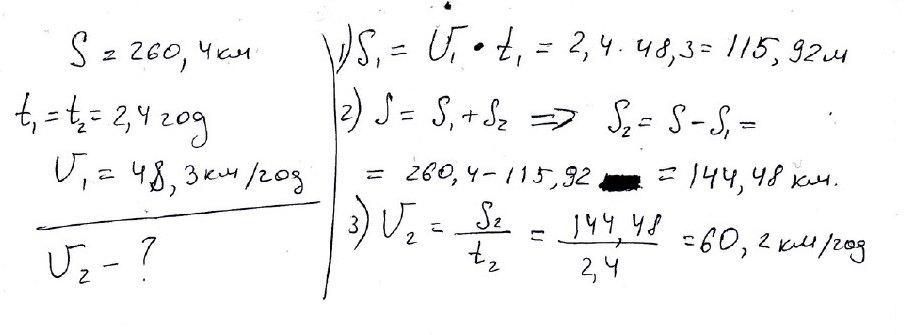 S = 260,4км
t₁ = t₂ = 2,4 год
V₁ = 48,3км/год
V₂ - ?
1) S₁ = V₁ • t₁ = 2,4 · 48,3 = 115,92м
2) S = S₁ + S₂ => S₂ = S - S₁ =
= 260,4 - 115,92 = 144,48 км.
3) V₂ = S₂/t₂ = 144,48/2,4 = 60,2км/год